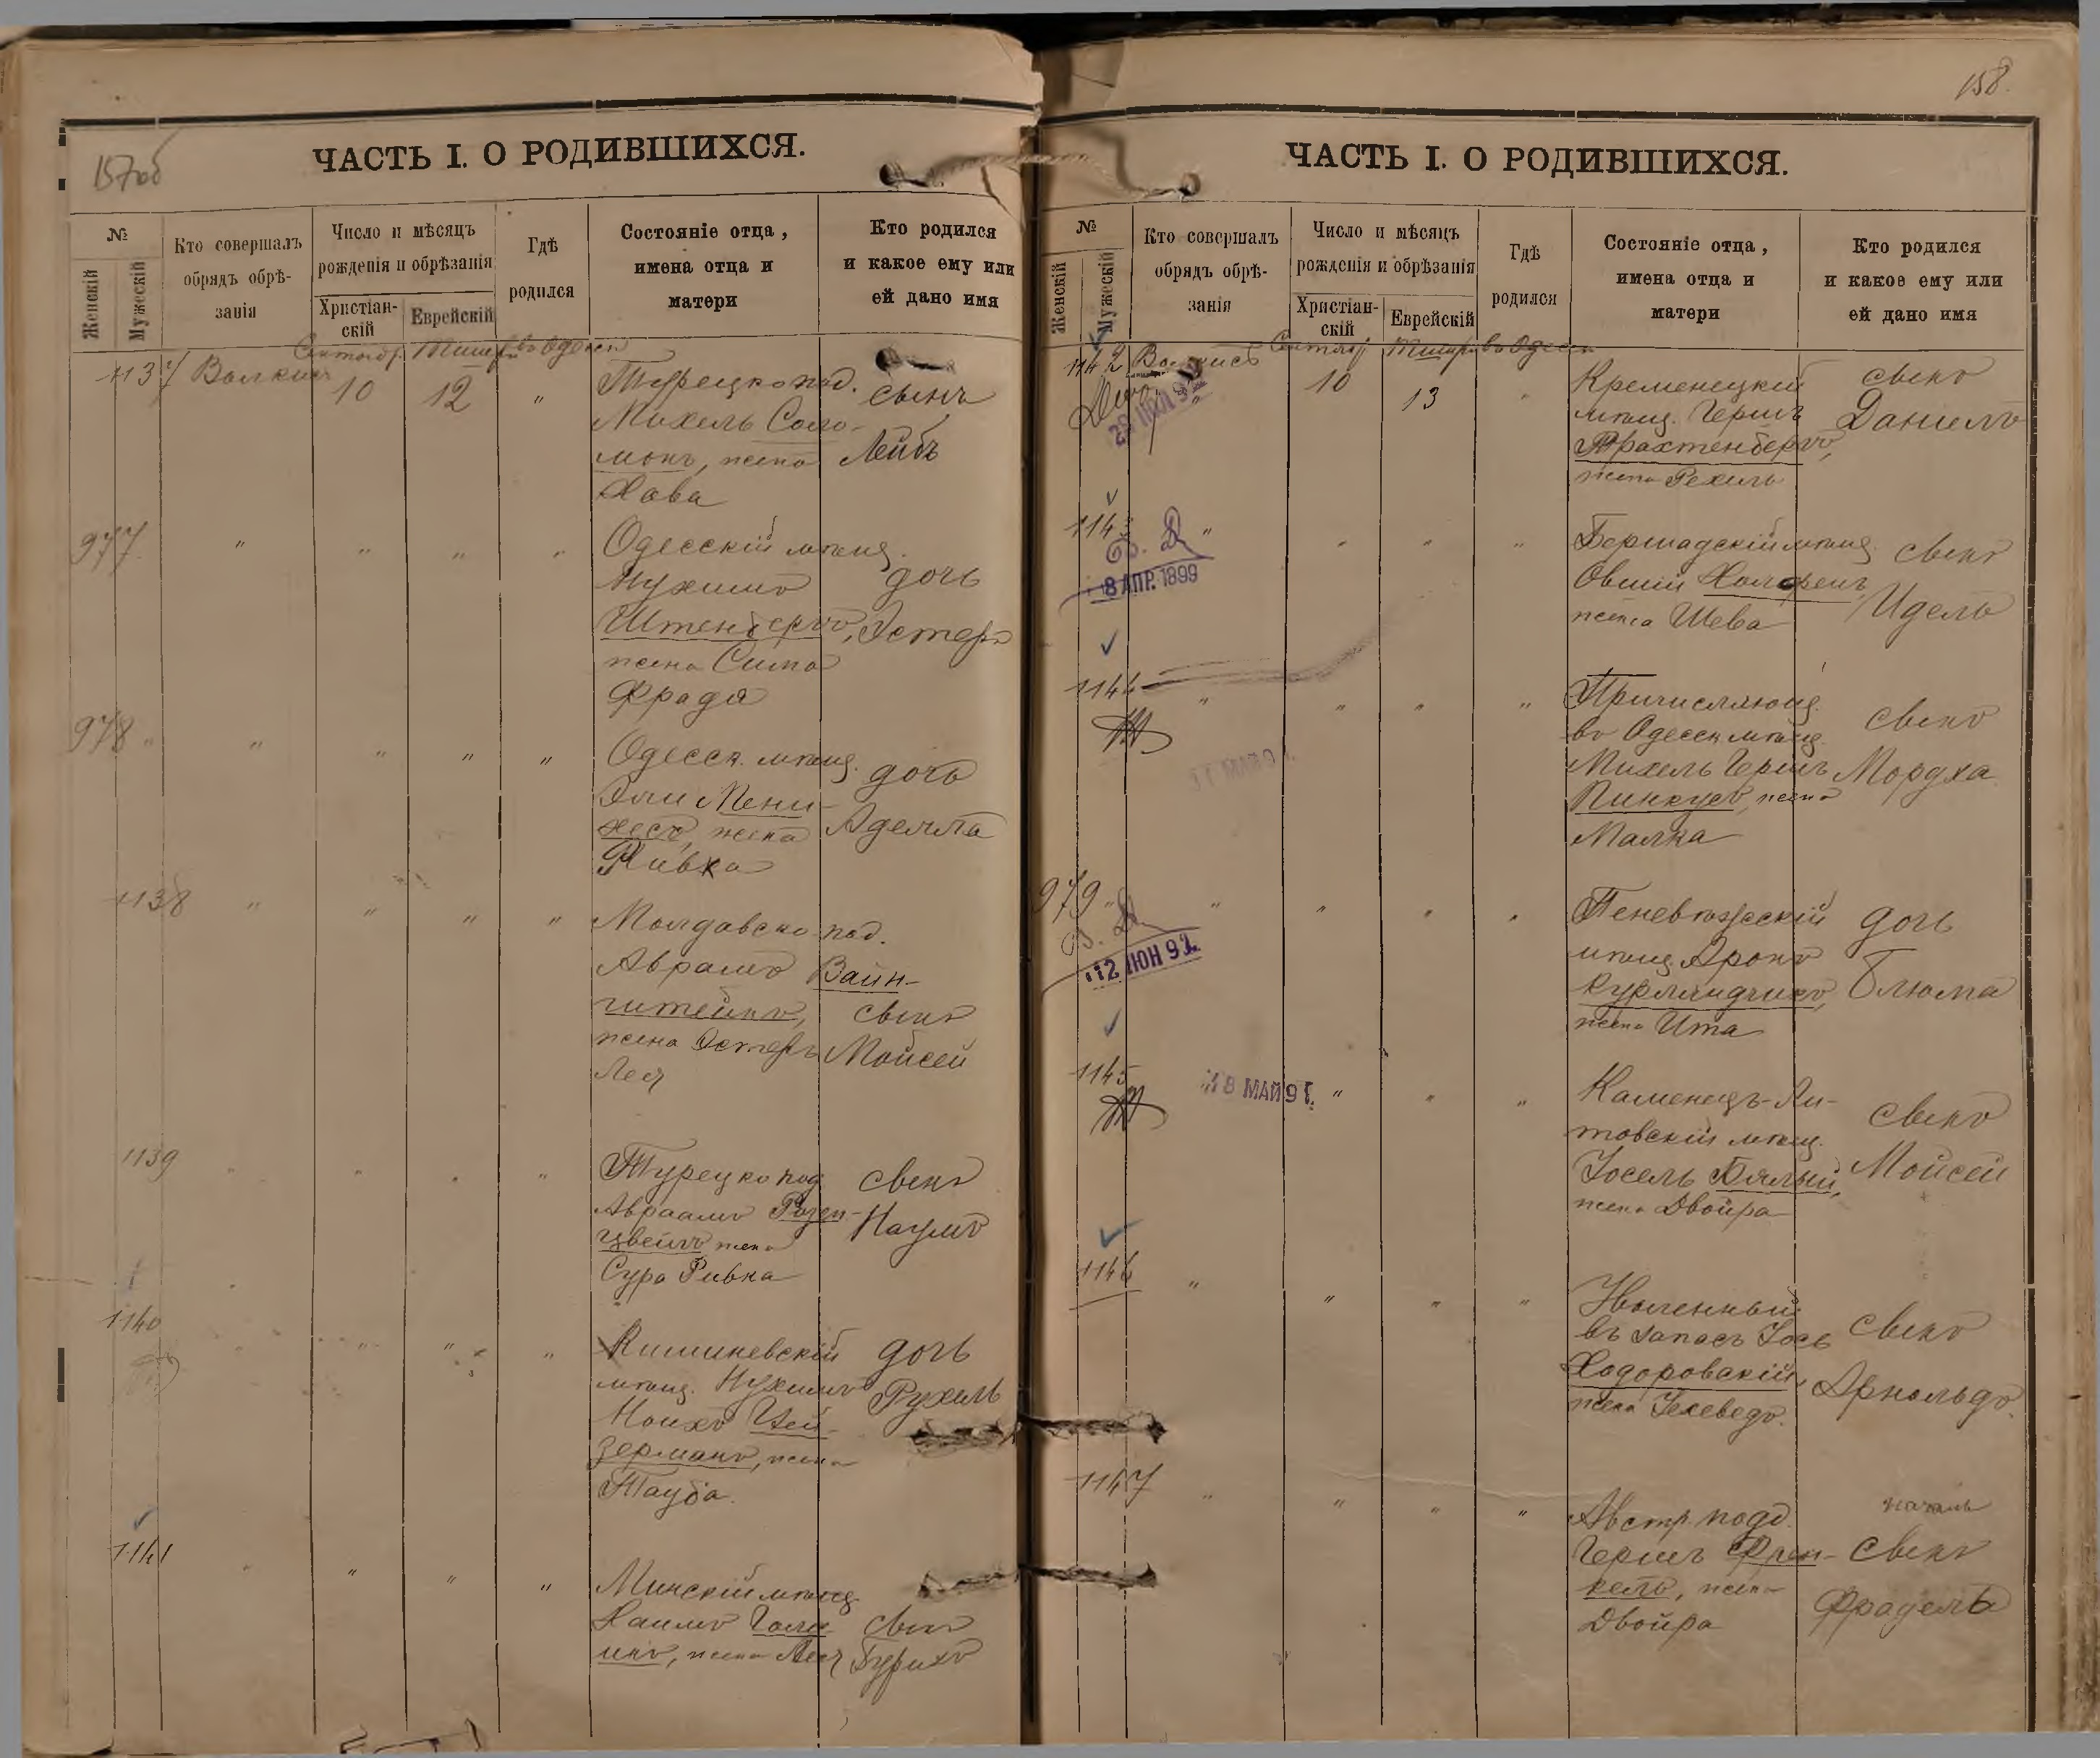 157об
ЧАСТЬ I. О РОДИВШИХСЯ.
№
Женскій
Мужескій
Кто совершалъ
обрядъ обрѣ-
занія
Число и мѣсяцъ
рожденія и обрѣзанія
Христіан-
скій
Еврейскій
Гдѣ
родился
Состояніе отца,
имена отца и
матери
Кто родился
и какое ему или
ей дано имя
1137
10
12
"
Турецко под.
Михель Соло-
монъ, жена
Хава
сынъ
Лейбъ
977
" " " "
Одесскій мѣщ.
Нухимъ
Штенбергъ,
жена Сима
Фрада
дочь
Эстеръ
978 "
" " " "
Одесск. мѣщ.
Эли Мени-
хесъ, жена
Ривка
дочь
Аделла
1138
" " " "
Молдавско под.
Аврамъ Вайн-
штейнъ,
жена Эстеръ
Лея
сынъ
Мойсей
1139
" " " "
Турецко под
Авраамъ Розен-
цвейгъ жена
Сура Ривка
сынъ
Наумъ
1140
" " "
Кишиневскій
мѣщ. Нухимъ
Цей-
зерманъ, жена
Тауба.
дочь
Рухель
1141
" " " "
Минскій мѣщ
Хаимъ
жена Лея
сынъ
158.
ЧАСТЬ I. О РОДИВШИХСЯ.
№
Женскій
Мужескій
Кто совершалъ
обрядъ обрѣ-
занія
Число и мѣсяцъ
рожденія и обрѣзанія
Христіан-
скій
Еврейскій
Гдѣ
родился
Состояніе отца,
имена отца и
матери
Кто родился
и какое ему или
ей дано имя
1142
10
13
"
Кременецкій
мѣщ. Гершъ
Трахтенбергъ,
жена Рехиль
сынъ
Даніелъ
1143
" " " "
8 АПР. 1899
Бершадскій мѣщ.
Овшій
жена Шева
сынъ
Идель
1144
" " " "
Причисляющ.
въ Одесск мѣщ.
Михель Гершъ
Пинкусъ, жена
Малка
сынъ
Мордха
979 "
" " " "
12 ИЮН 92.
Поневѣжскій
мѣщ. Аронъ
Курляндчикъ,
жена Ита
дочь
Блюма
1145
18 МАЙ 91.
" " "
Каменецъ-Ли-
товскій мѣщ.
Іосель Бялый,
жена Двойра
сынъ
Мойсей
1146
" " " "
Уволенный
въ запасъ Іось
Ходоровскій,
жена Іехеведъ.
сынъ
Арнольдъ.
1147
" " " "
Австр. подд.
Гершъ Френ-
кель, жена
Двойра
сынъ
Фрадель